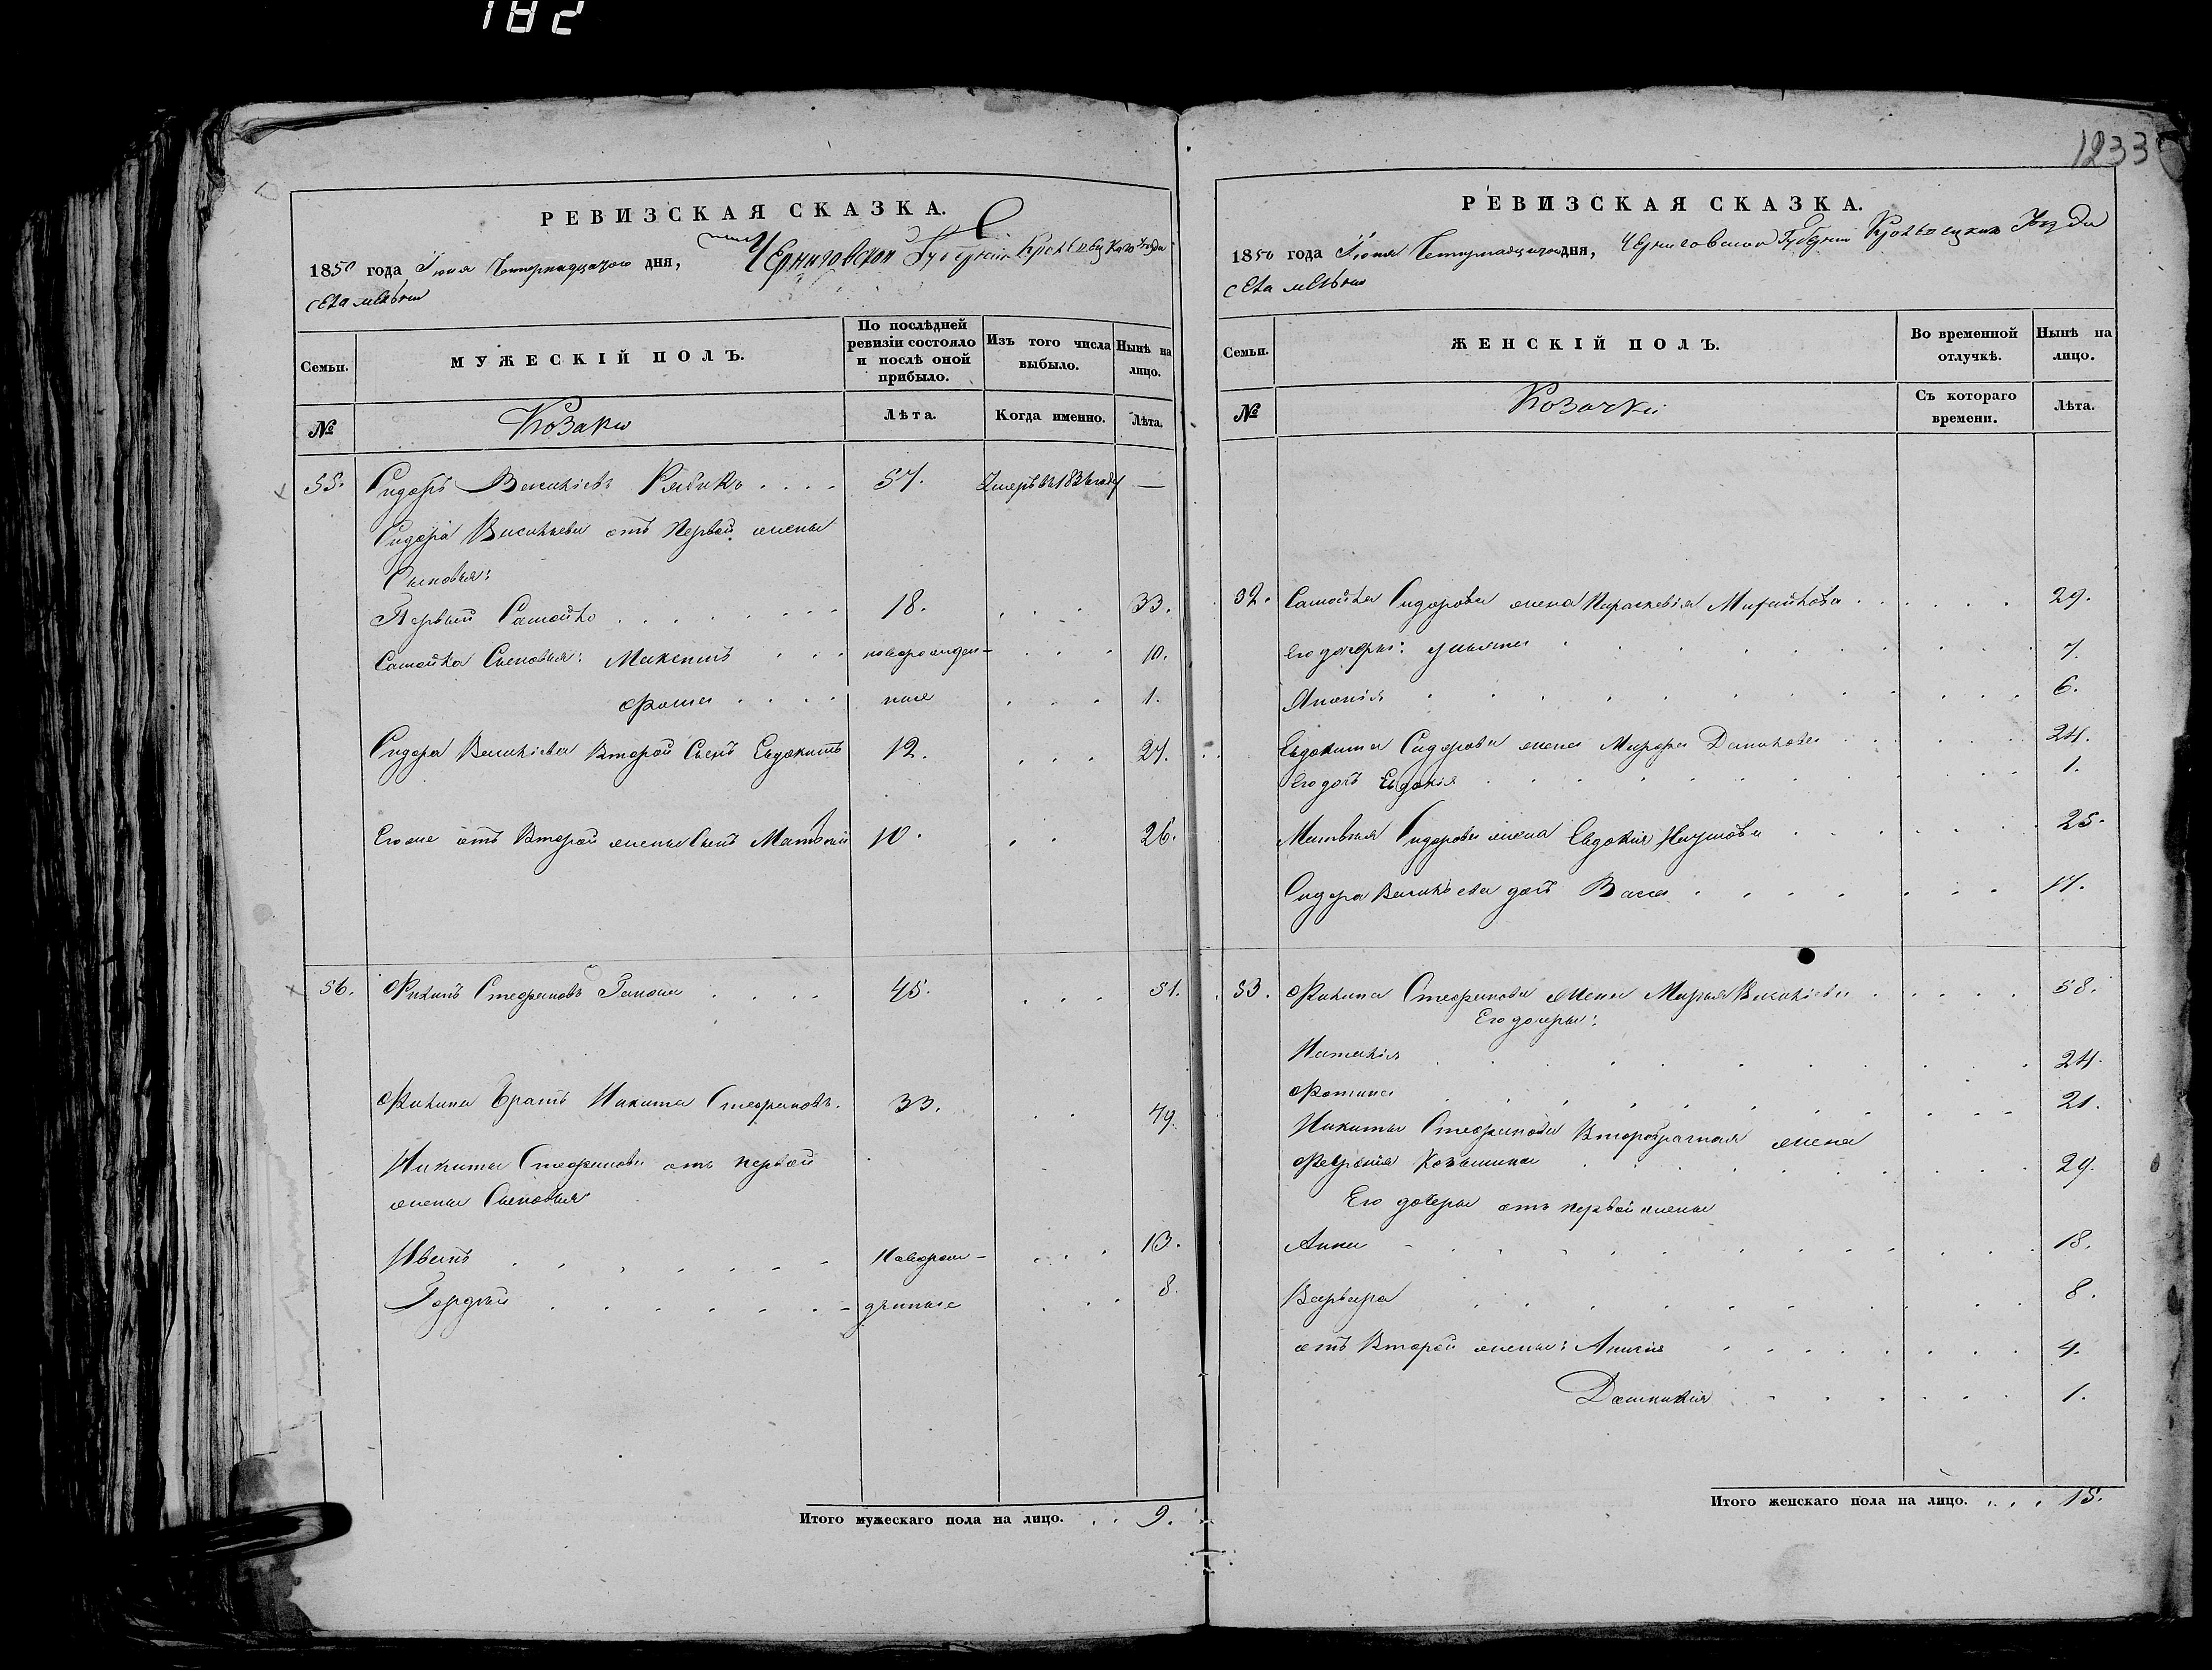 182
1233
РЕВИЗСКАЯ СКАЗКА.
1850 года Іюня Четырнадцатого дня, Черниговской Губерніи Кролевецкого Уѣзда
села
Семьи.
МУЖЕСКІЙ ПОЛЪ.
По послѣдней ревизіи состояло и послѣ оной прибыло.
Изъ того числа выбыло.
Нынѣ на лицо.
№
Козаки
Лѣта.
Когда именно.
Лѣта.
55. Сидоръ Васильевъ Рябико 57. Умеръ въ 183 году —
Сидора Васильева отъ первой жены
Сыновья:
Первый Самойло 18. 33.
Самойла Сыновья: Макситъ новорожден- 10.
Фома ные 1.
Сидора Васильева Второй Сынъ Евдокимъ 12. 27.
Его же отъ Второй жены Сынъ Матвѣй 10. 26.
56. Филипъ Стефановъ 45. 51.
Филипа братъ Никита Стефановъ. 33. 49.
Никиты Стефанова отъ первой
жены Сыновья
Иванъ новорож- 13.
Гордѣй денные 8.
Итого мужескаго пола на лицо. 9.
РЕВИЗСКАЯ СКАЗКА.
1850 года Іюня Четырнадцатогодня, Черниговской Губерніи Кролевецкого Уѣзда
села
Семьи.
ЖЕНСКІЙ ПОЛЪ.
Во временной отлучкѣ.
Нынѣ на лицо.
№
Козачки
Съ котораго времени.
Лѣта.
Самойла Сидорова жена Параскевія Михайлова 29.
Его дочеры: Ульяна 7.
6.
Евдокима Сидорова жена Марфа Данилова 24.
Его дочь Евдокія 1.
Матвѣя Сидорова жена Евдокія Наумова 25.
Сидора Васильева дочь Васса 17.
53. Филипа Стефанова жена Марья Васильева 58.
Его дочеры:
Наталія 24.
Фотина 21.
Никиты Стефанова Второбрачная жена
Февронія Козьмина 29.
Его дочеры отъ первой жены
Анна 18.
Варвара 8.
отъ Второй жены: 4.
Домникія 1.
Итого женскаго пола на лицо. 15.